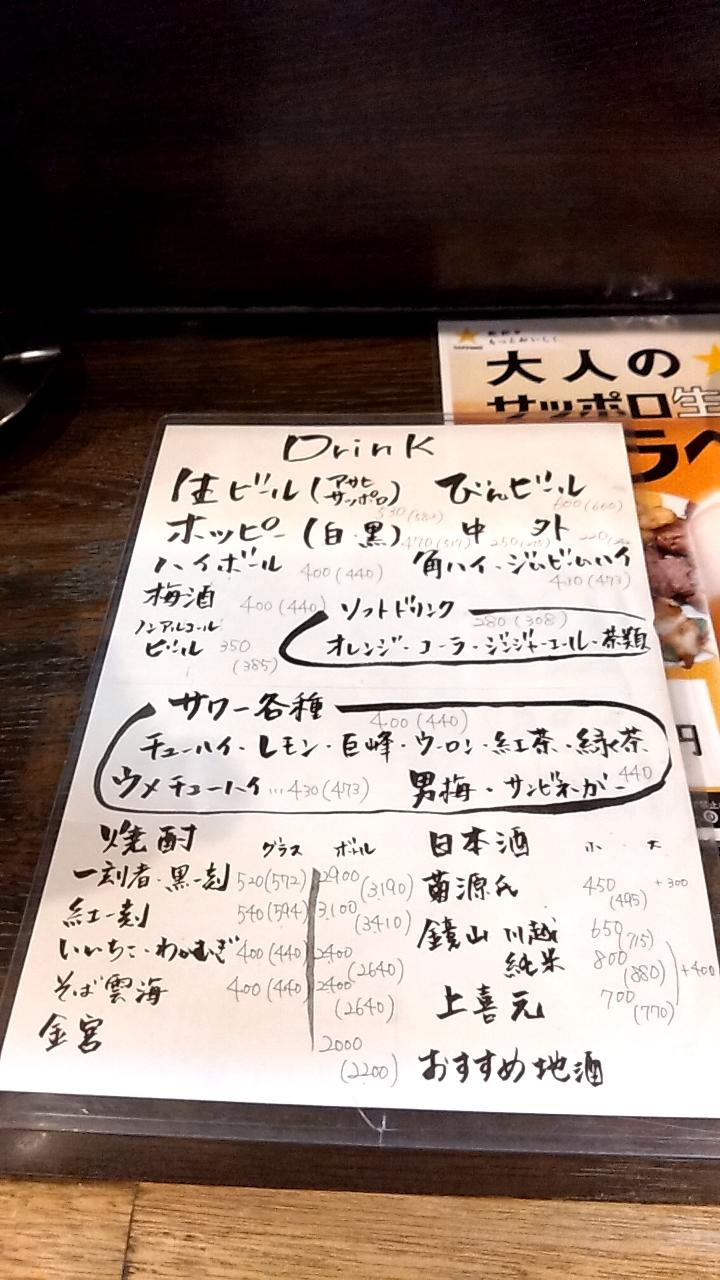 大人の
サッポロ生
ラベ
円
Drink
生ビール(アサヒ サッポロ) 530(583) びんビール 600(660)
ホッピー(白・黒) 470(517) 中 250(275) 外 220
ハイボール 400(440) 角ハイ・ジムビームハイ 430(473)
梅酒 400(440)
ノンアルコール
ビール 350
(385)
ソフトドリンク 280(308)
オレンジ・コーラ・ジンジャーエール・茶類
サワー各種 400(440)
チューハイ・レモン・巨峰・ウーロン・紅茶・緑茶
ウメチューハイ…430(473) 男梅・サンビネガー 440
焼酎 グラス ボトル
一刻者・黒一刻 520(572) 2900(3190)
紅一刻 540(594) 3,100(3410)
いいちこ・わかむぎ 400(440) 2400(2640)
そば雲海 400(440) 2400(2640)
金宮 2000(2200)
日本酒 小 大
菊源氏 450(495) +300
鏡山 川越 650(715)
純米 800(880) +400
上喜元 700(770)
おすすめ地酒